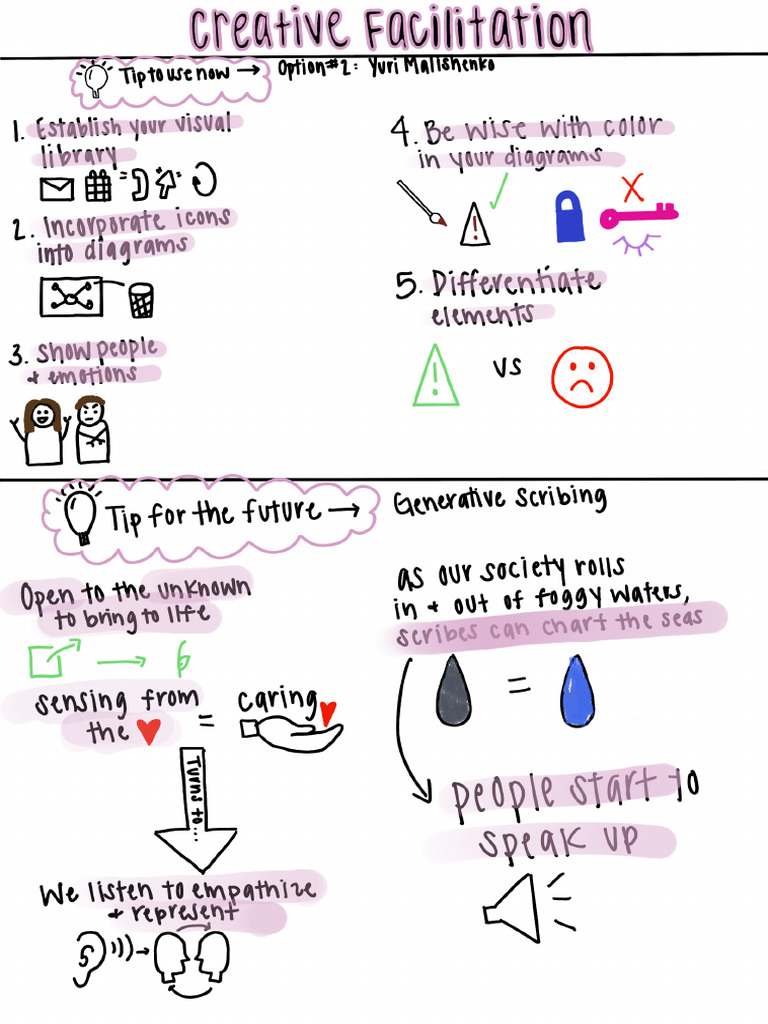 Creative Facilitation
Tip to use now → Option #2: Yuri Malishenko
1. Establish your visual
library
2. Incorporate icons
into diagrams
3. Show people
+ emotions
4. Be wise with color
in your diagrams
5. Differentiate
elements
vs
Tip for the future → Generative Scribing
Open to the unknown
to bring to life
sensing from
the ♥ = caring
Turns to...
We listen to empathize
+ represent
as our society rolls
in + out of foggy waters,
scribes can chart the seas
=
people start to
speak up